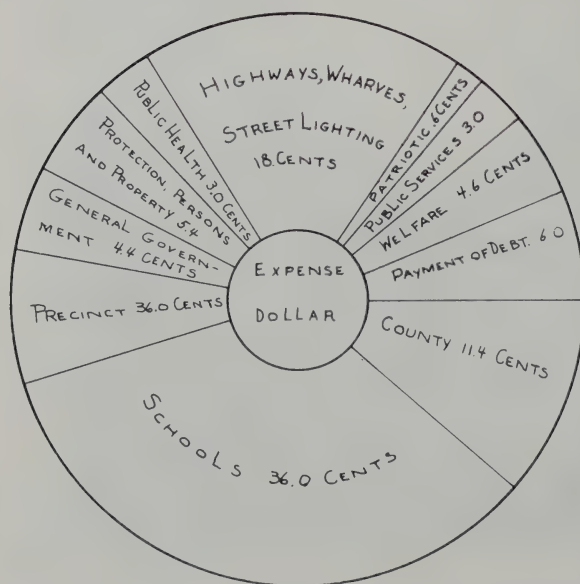 HIGHWAYS, WHARVES,
STREET LIGHTING
18. CENTS
PATRIOTIC .6 CENTS
PUBLIC SERVICES 3.0
WELFARE 4.6 CENTS
PAYMENT OF DEBT. 6 0
COUNTY 11.4 CENTS
SCHOOLS 36.0 CENTS
PRECINCT 36.0 CENTS
GENERAL GOVERN-
MENT 4.4 CENTS
PROTECTION, PERSONS
AND PROPERTY 5.4
PUBLIC HEALTH 3.0 CENTS
EXPENSE
DOLLAR